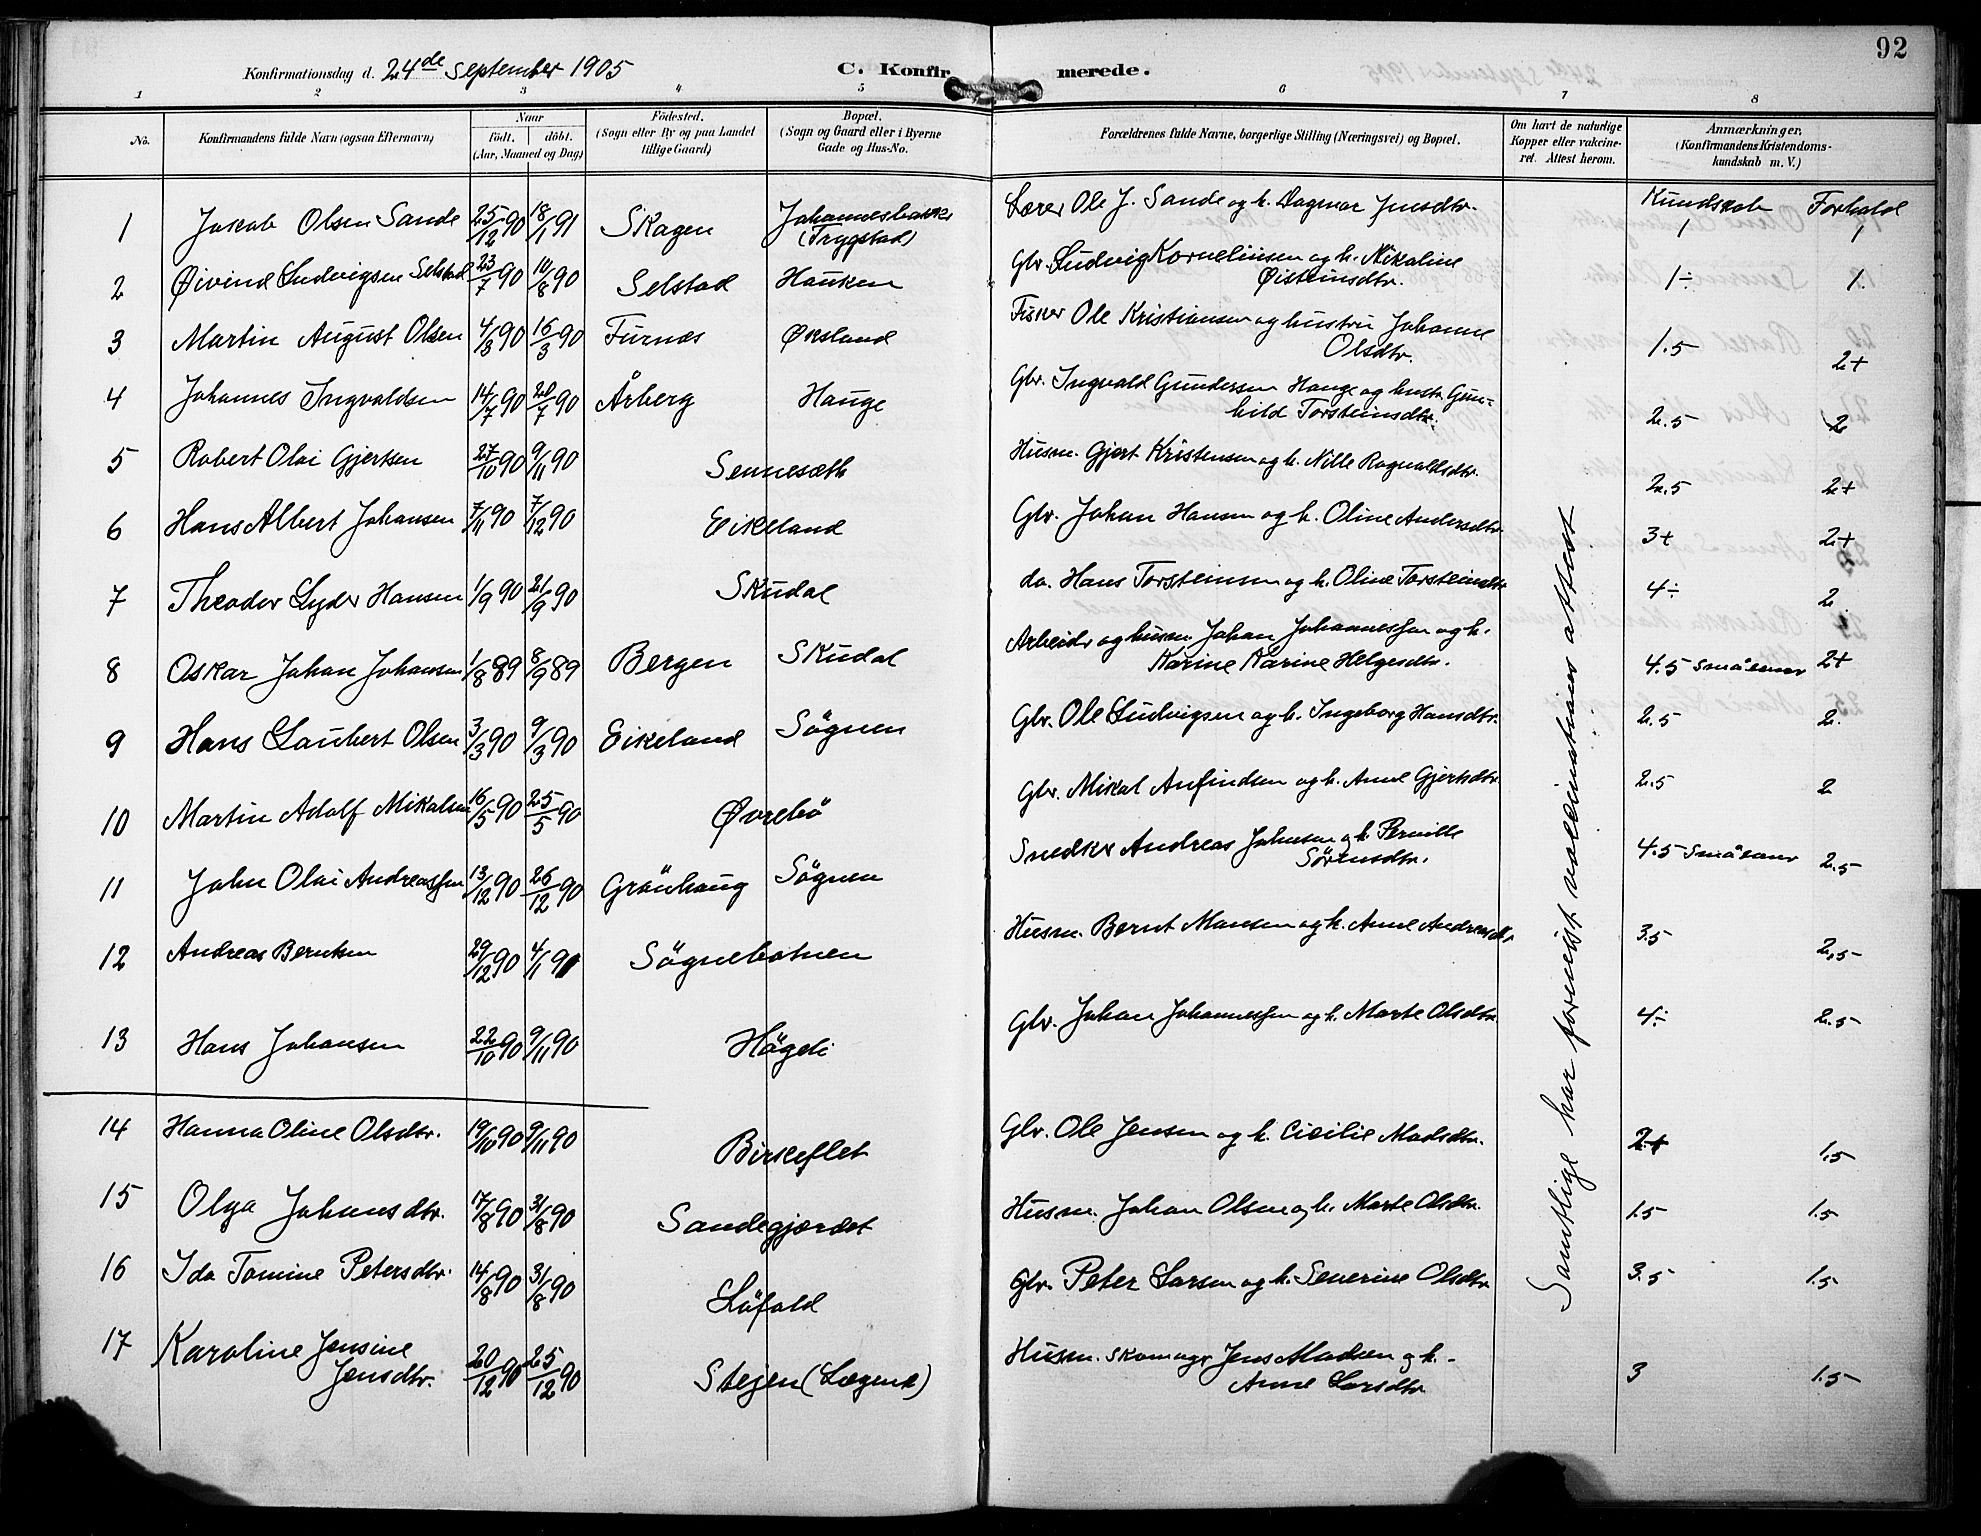 92
Konfirmationsdag d. 24de September 1905 C. Konfirmerede.
1 2 3 4 5 6 7 8
No.
Konfirmandens fulde Navn (ogsaa Efternavn)
Naar
født. døbt.
(Aar, Maaned og Dag)
Fødested.
(Sogn eller By og paa Landet
tillige Gaard)
Bopæl.
(Sogn og Gaard eller i Byerne
Gade og Hus-No.
Forældrenes fulde Navne, borgerlige Stilling (Næringsvei) og Bopæl.
Om havt de naturlige
Kopper eller vakcine-
ret. Attest herom.
Anmærkninger.
(Konfirmandens Kristendoms-
kundskab m. V.)
Kundskab Forhold
1 Jakob Olsen Sande 25/12 90 18/1 91 Skagen Johannesbakke (Trygstad) Lærer Ole J. Sande og h. Dagmar Jensdtr. 1 1
2 Øivind Ludvigsen Selstad 23/7 90 10/8 90 Selstad Hauken Gbr. Ludvig Korneliusen og h. Nikoline
Øisteinsdtr. 1÷ 1.
3 Martin August Olsen 4/3 90 16/3 90 Furnes Øksland Fisker Ole Kristiansen og hustru Johanne
Olsdtr. 1.5 2+
4 Johannes Ingvaldsen 14/7 90 20/7 90 Årberg Hauge Gbr. Ingvald Gundersen Hauge og hustr. Gun-
hild Torsteinsdtr. 2.5 2
5 Robert Olai Gjertsen 27/10 90 9/11 90 Sennesæth Husm. Gjert Kristensen og h. Nille Rognaldsdtr. 2.5 2+
6 Hans Albert Johansen 7/11 90 7/12 90 Eikeland Gbr. Johan Hansen og h. Oline Andersdtr. 3+ 2+
7 Theodor Lyder Hansen 1/9 90 21/9 90 Skudal do. Hans Torsteinsen og h. Oline Torsteinsdtr 4÷ 2.
8 Oskar Johan Johansen 1/8 89 8/9 89 Bergen Skudal Arbeider og husm. Johan Johannessen og h.
Karine Karine Helgesdtr. 4.5 småævner 2+
9 Hans Laubert Olsen 3/3 90 9/3 90 Eikeland Sögnen Gbr. Ole Ludvigsen og h. Ingeborg Hansdtr. 2.5 2.
10 Martin Adolf Mikalsen 16/5 90 25/5 90 Øvrebö Gbr. Mikal Anfindsen og h. Anne Gjertsdtr. 2.5 2
11 John Olai Andreassen 13/12 90 26/12 90 Grönhaug Sögnen Snedker Andreas Johnsen og h. Pernille
Sörensdtr. 4.5 småævner 2.5
12 Andreas Berntsen 29/12 90 4/1 91 Sögnebotnen Husm. Bernt Monsen og h. Anne Andreasdtr 3.5 2.5
13 Hans Johansen 22/10 90 9/11 90 Högeli Gbr. Johan Johannessen og h. Marte Olsdtr. 4÷ 2.5
14 Hanna Oline Olsdtr. 19/10 90 9/11 90 Birkeflet Gbr. Ole Jensen og h. Cicilie Madsdtr. 2+ 1.5
15 Olga Johansdtr. 17/8 90 31/8 90 Sandegjærdet Husm. Johan Olsen og h. Marte Olsdtr. 1.5 1.5
16 Ida Tomine Petersdtr. 14/8 90 31/8 90 Löfald Gbr. Peter Larsen og h. Severine Olsdtr 3.5 1.5
17 Karoline Jensine
Jensdtr. 20/12 90 25/12 90 Stegen (Lægene) Husm. skomager Jens Madsen og h.
Anne Larsdtr 3 1.5
Samtlige har forevist vaccinations attest